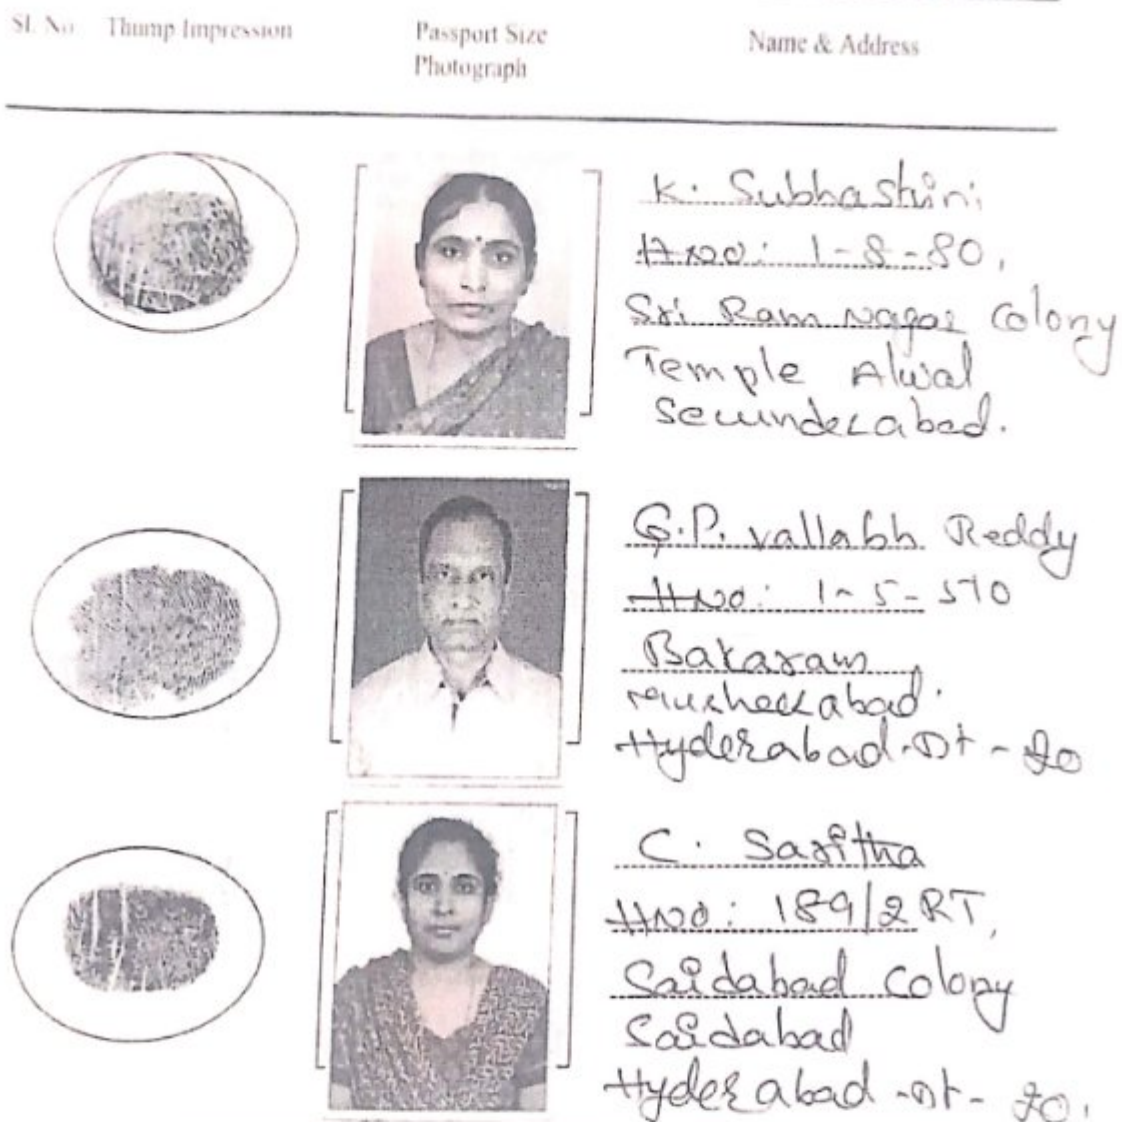 Sl. No Thump Impression Passport Size Photograph Name & Address
K. Subhashini
H.NO: 1-8-80,
Sri Ram Nagar Colony
Temple Alwal
Secunderabad.
G.P. Vallabh Reddy
HNO: 1-5-570
Bakaram,
Musheerabad.
Hyderabad-Dt - 20
C. Saritha
HNO: 189/2RT,
Saidabad Colony
Saidabad
Hyderabad-Dt- 20.